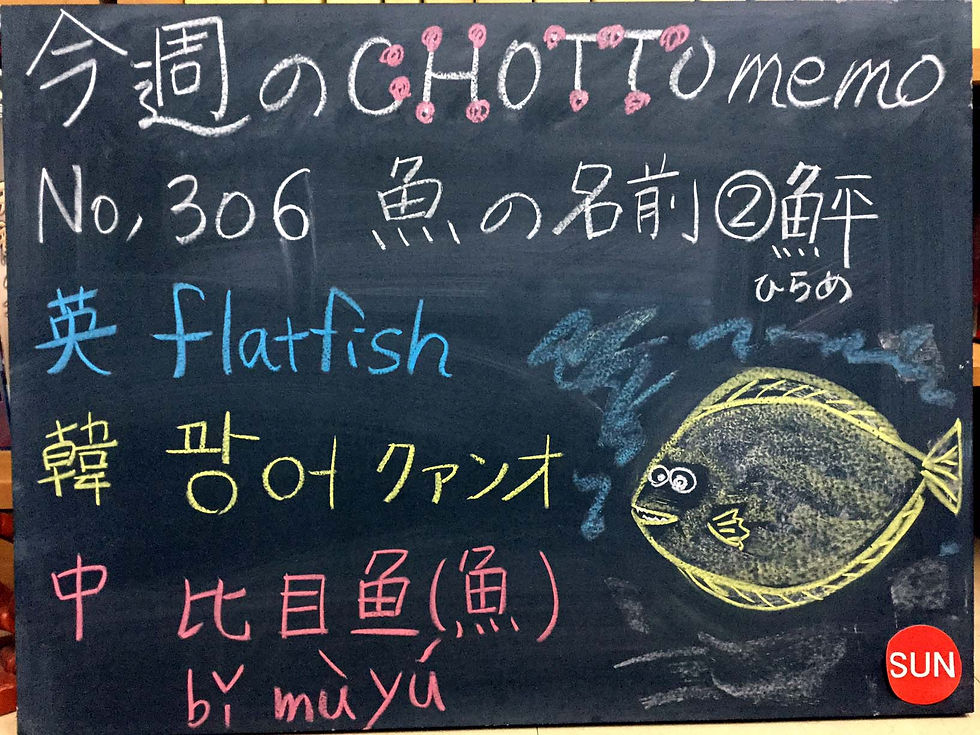 今週のCHOTTOmemo
No, 306 魚の名前②鮃
ひらめ
英 flatfish
韓 광어 クァンオ
中 比目鱼(魚)
bǐ mù yú
SUN